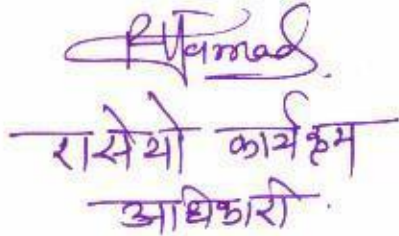 रासेयो कार्यक्रम
अधिकारी.